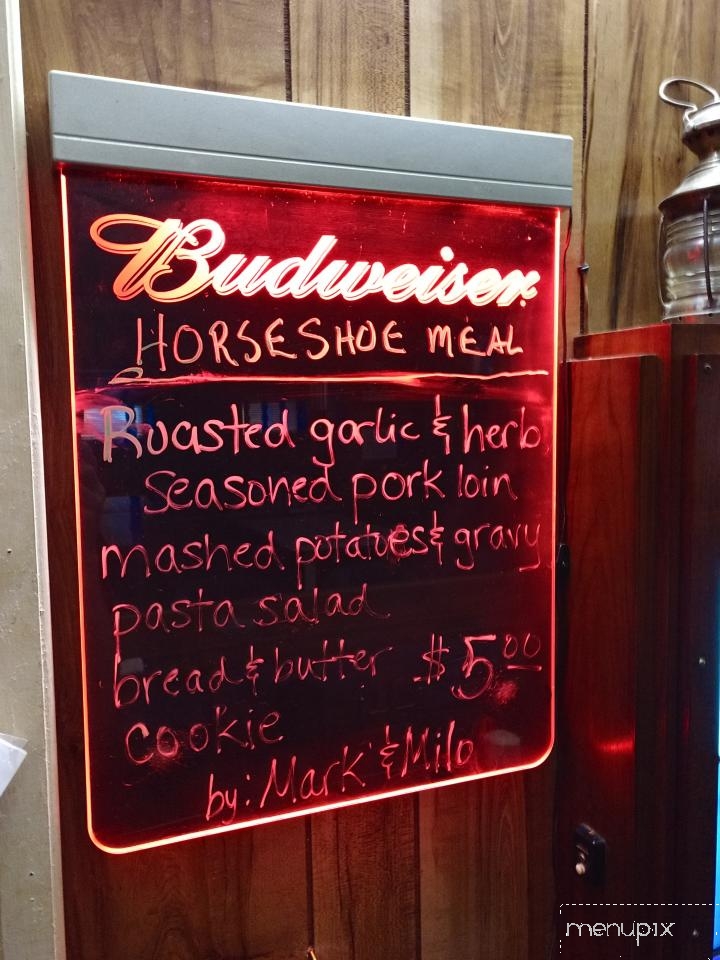 Budweiser
HORSESHOE MEAL
Roasted garlic & herb
seasoned pork loin
mashed potatoes & gravy
pasta salad
bread & butter $5.00
cookie
by: Mark & Milo
menupix